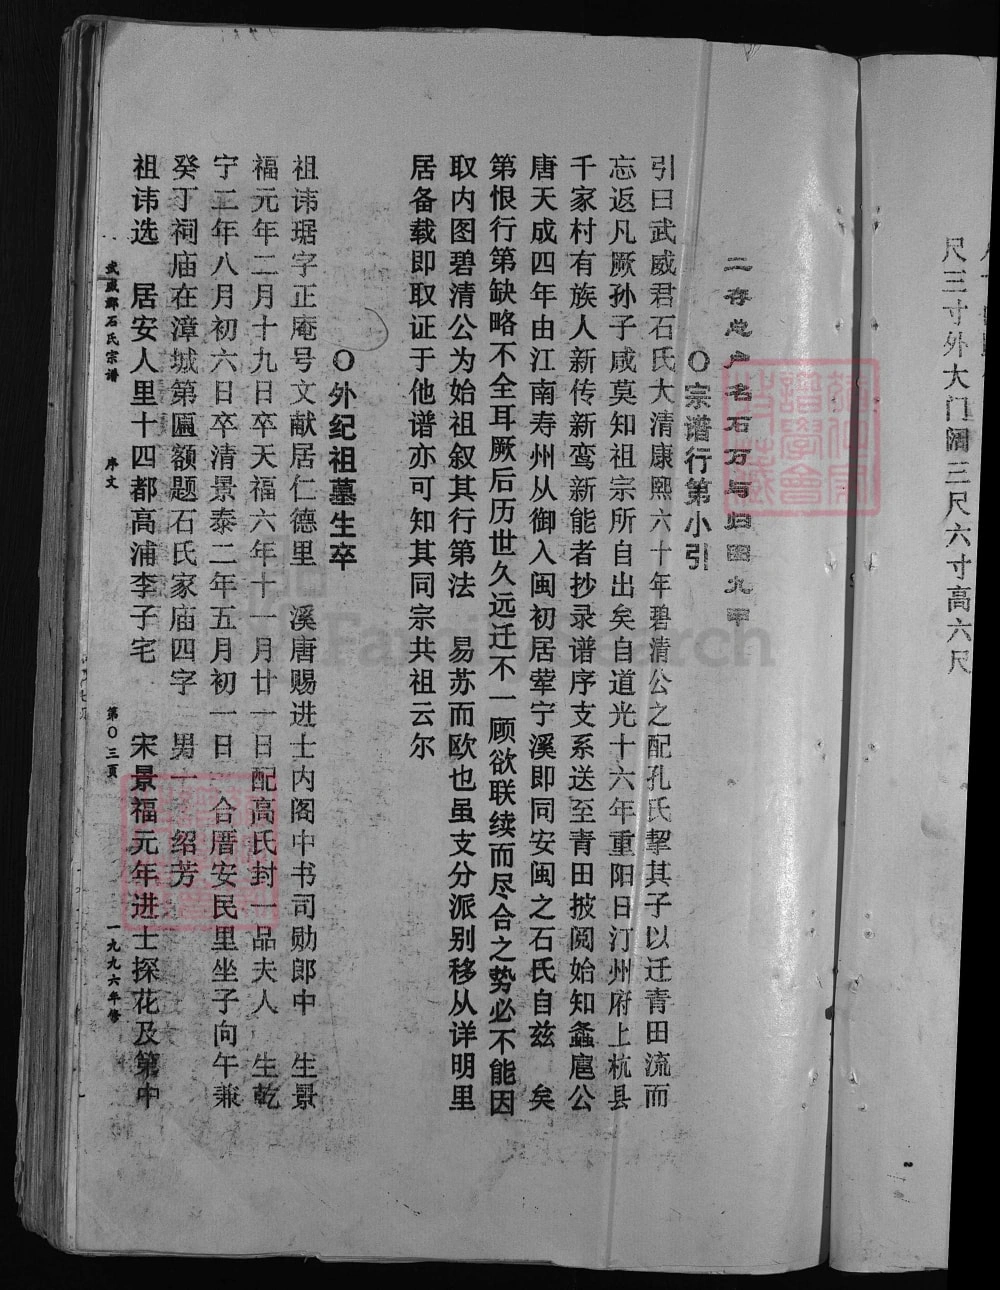 尺三寸外大门阔三尺六寸高六尺
二存总户名石万与归图九甲
〇宗谱行第小引
引曰武威君石氏大清康熙六十年碧清公之配孔氏挈其子以迁青田流而
忘返凡厥孙子咸莫知祖宗所自出矣自道光十六年重阳日汀州府上杭县
千家村有族人新传新鸾新能者抄录谱序支系送至青田披阅始知螽扈公
唐天成四年由江南寿州从御入闽初居荤宁溪即同安闽之石氏自兹 矣
第恨行第缺略不全耳厥后历世久远迁不一顾欲联续而尽合之势必不能因
取内图碧清公为始祖叙其行第法 易苏而欧也虽支分派别移从详明里
居备载即取证于他谱亦可知其同宗共祖云尔
〇外纪祖墓生卒
祖讳琚字正庵号文献居仁德里 溪唐赐进士内阁中书司勋郎中 生景
福元年二月十九日卒天福六年十一月廿一日配高氏封一品夫人 生乾
宁二年八月初六日卒清景泰二年五月初一日 合厝安民里坐子向午兼
癸丁祠庙在漳城第匾额题石氏家庙四字 男一 绍芳
祖讳选 居安人里十四都高浦李子宅 宋景福元年进士探花及第中
武威郡石氏宗谱 序文 第〇三页 一九九六年修
FamilySearch